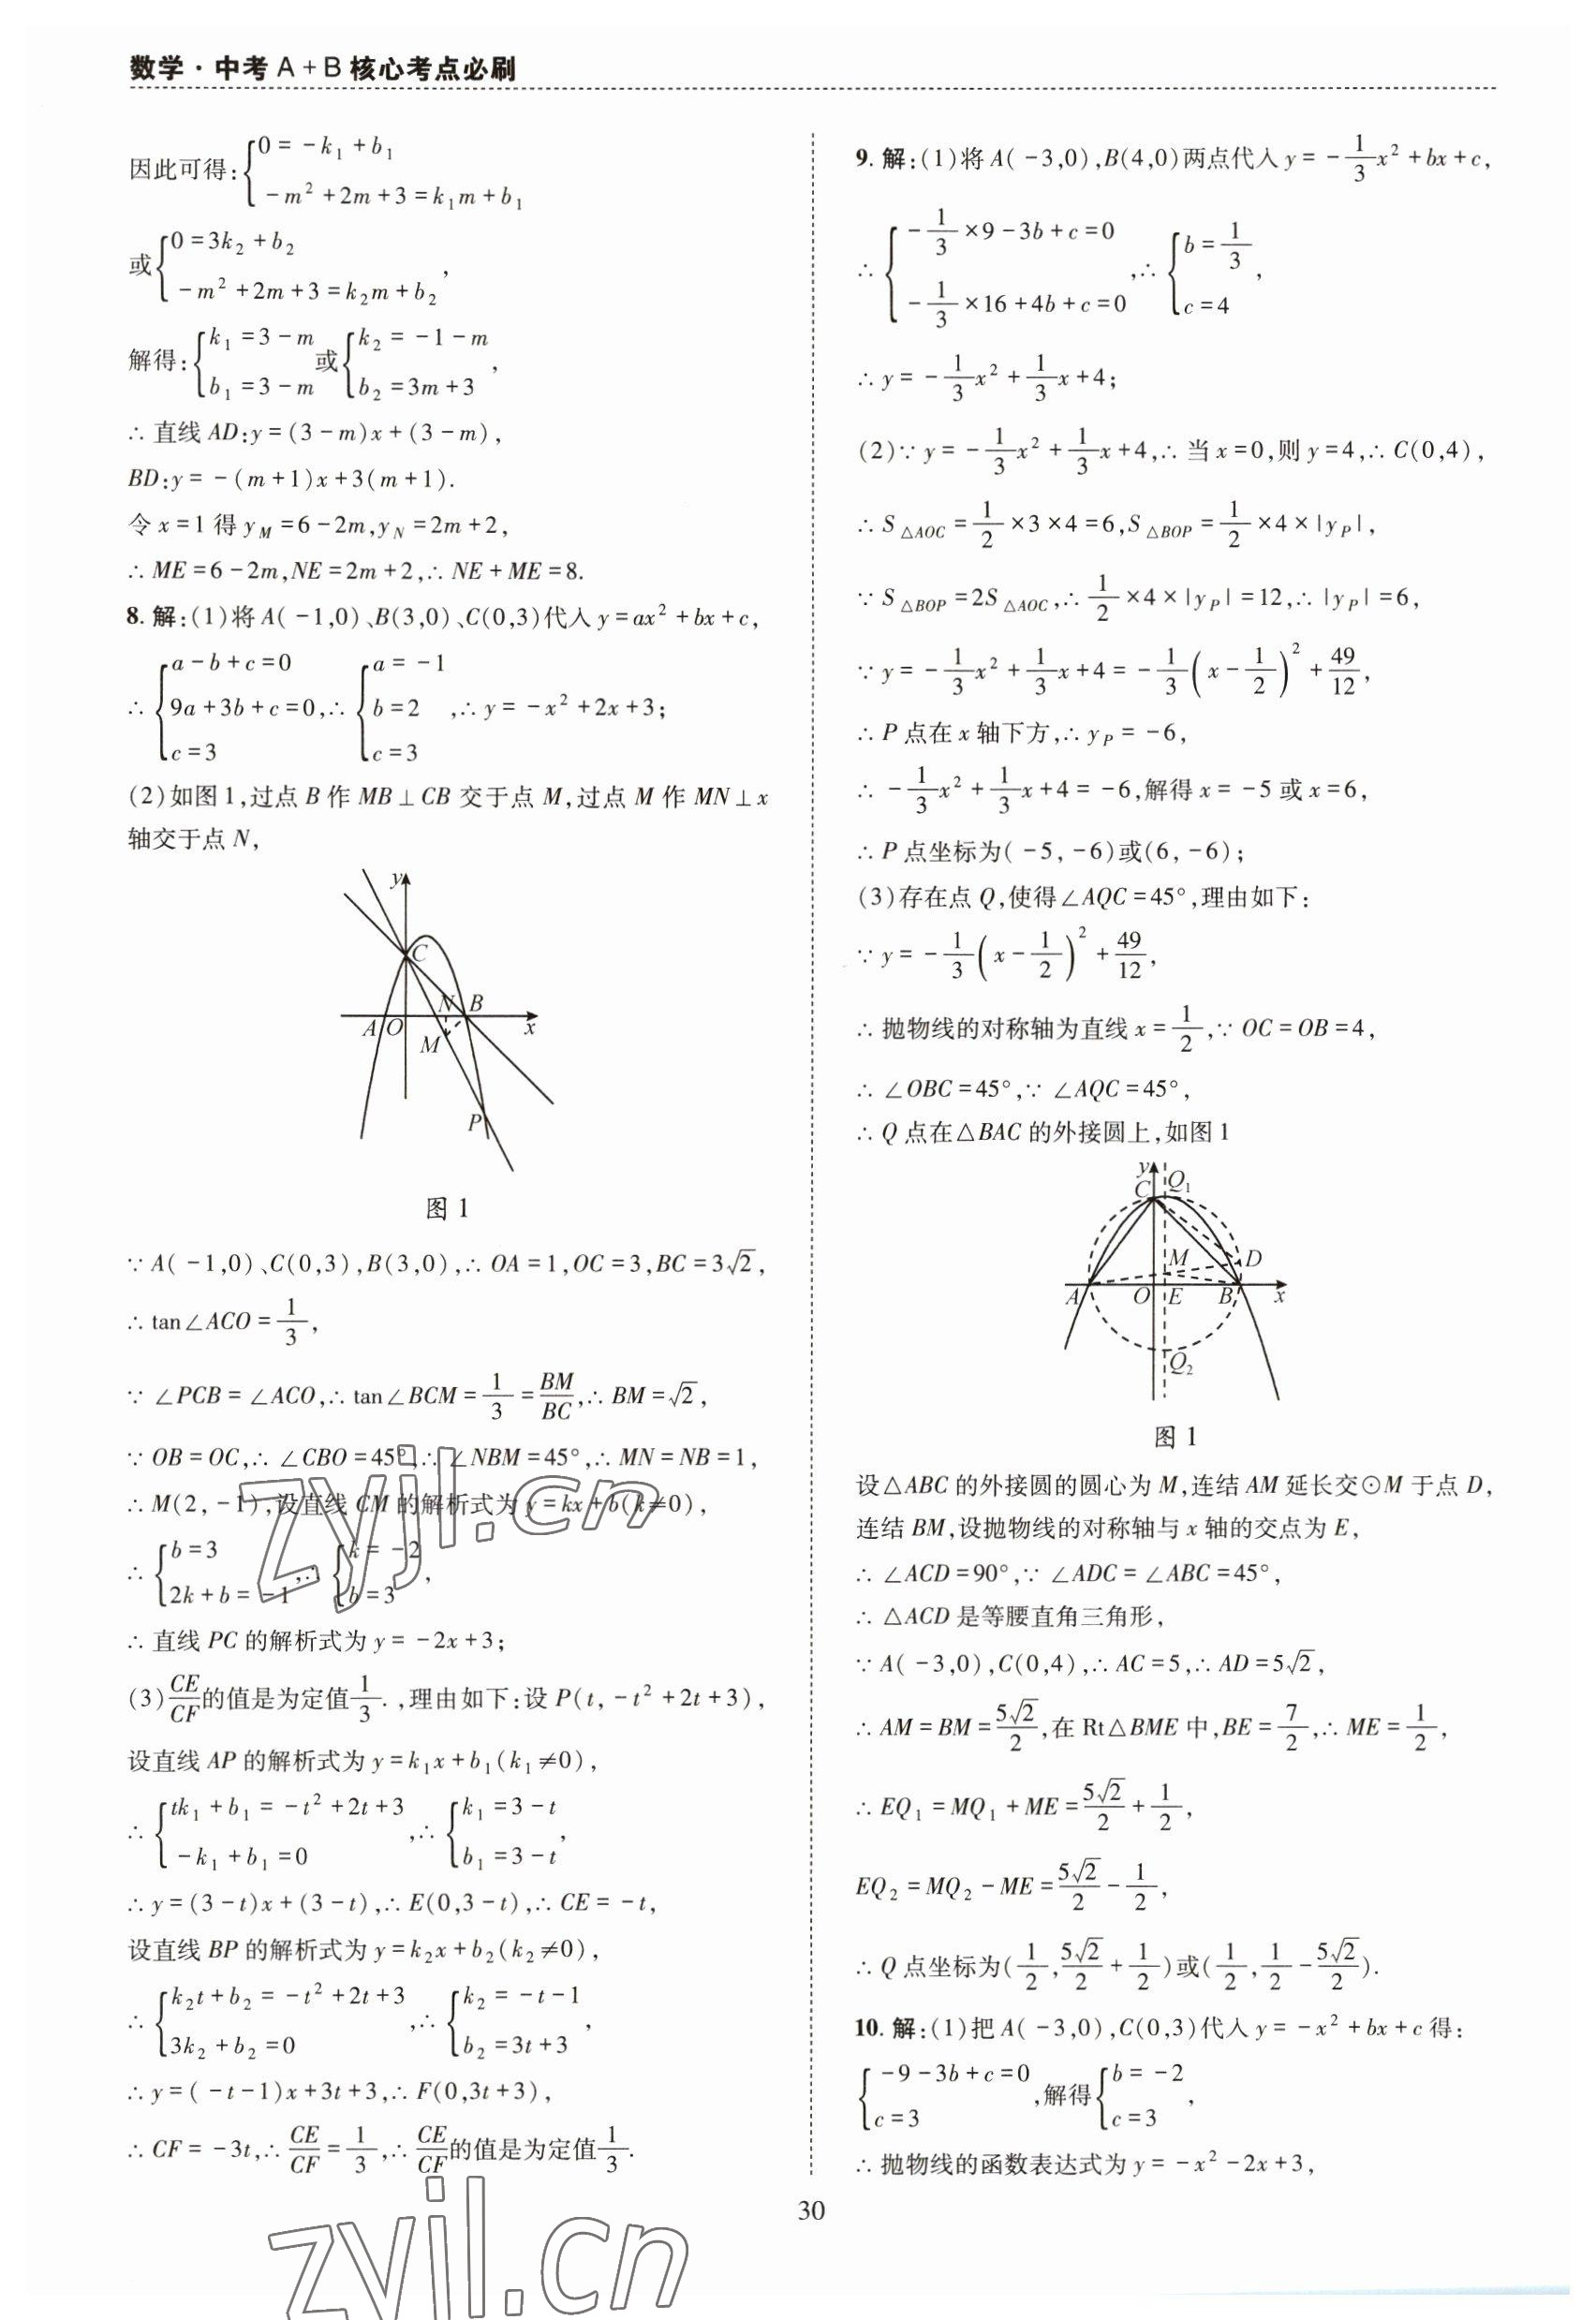 数学·中考 A+B 核心考点必刷
因此可得:{0=-k₁+b₁
-m²+2m+3=k₁m+b₁
或{0=3k₂+b₂
-m²+2m+3=k₂m+b₂,
解得:{k₁=3-m 或{k₂=-1-m
b₁=3-m b₂=3m+3,
∴直线 AD:y=(3-m)x+(3-m),
BD:y=-(m+1)x+3(m+1).
令 x=1 得 y_M=6-2m,y_N=2m+2,
∴ME=6-2m,NE=2m+2,∴NE+ME=8.
8. 解:(1)将 A(-1,0)、B(3,0)、C(0,3)代入 y=ax²+bx+c,
∴{a-b+c=0 {a=-1
9a+3b+c=0,∴ b=2 ,∴y=-x²+2x+3;
c=3 c=3
(2)如图1,过点 B 作 MB⊥CB 交于点 M,过点 M 作 MN⊥x
轴交于点 N,
y
C
N B
A O x
M
P
图 1
∵A(-1,0)、C(0,3),B(3,0),∴OA=1,OC=3,BC=3√2,
∴tan∠ACO=1/3,
∵∠PCB=∠ACO,∴tan∠BCM=1/3=BM/BC,∴BM=√2,
∵OB=OC,∴∠CBO=45°,∴∠NBM=45°,∴MN=NB=1,
∴M(2,-1),设直线 CM 的解析式为 y=kx+b(k≠0),
∴{b=3 {k=-2
2k+b=-1,∴ b=3,
∴直线 PC 的解析式为 y=-2x+3;
(3)CE/CF的值是为定值1/3.,理由如下:设 P(t,-t²+2t+3),
设直线 AP 的解析式为 y=k₁x+b₁(k₁≠0),
∴{tk₁+b₁=-t²+2t+3 {k₁=3-t
-k₁+b₁=0 ,∴ b₁=3-t,
∴y=(3-t)x+(3-t),∴E(0,3-t),∴CE=-t,
设直线 BP 的解析式为 y=k₂x+b₂(k₂≠0),
∴{k₂t+b₂=-t²+2t+3 {k₂=-t-1
3k₂+b₂=0 ,∴ b₂=3t+3,
∴y=(-t-1)x+3t+3,∴F(0,3t+3),
∴CF=-3t,∴CE/CF=1/3,∴CE/CF的值是为定值1/3.
9. 解:(1)将 A(-3,0),B(4,0)两点代入 y=-1/3x²+bx+c,
∴{-1/3×9-3b+c=0 {b=1/3
-1/3×16+4b+c=0 ,∴ c=4,
∴y=-1/3x²+1/3x+4;
(2)∵y=-1/3x²+1/3x+4,∴当 x=0,则 y=4,∴C(0,4),
∴S△AOC=1/2×3×4=6,S△BOP=1/2×4×|y_P|,
∵S△BOP=2S△AOC,∴1/2×4×|y_P|=12,∴|y_P|=6,
∵y=-1/3x²+1/3x+4=-1/3(x-1/2)²+49/12,
∴P 点在 x 轴下方,∴y_P=-6,
∴-1/3x²+1/3x+4=-6,解得 x=-5 或 x=6,
∴P 点坐标为(-5,-6)或(6,-6);
(3)存在点 Q,使得∠AQC=45°,理由如下:
∵y=-1/3(x-1/2)²+49/12,
∴抛物线的对称轴为直线 x=1/2,∵OC=OB=4,
∴∠OBC=45°,∵∠AQC=45°,
∴Q 点在△BAC 的外接圆上,如图1
y
C Q₁
M D
A O E B x
Q₂
图 1
设△ABC 的外接圆的圆心为 M,连结 AM 延长交⊙M 于点 D,
连结 BM,设抛物线的对称轴与 x 轴的交点为 E,
∴∠ACD=90°,∵∠ADC=∠ABC=45°,
∴△ACD 是等腰直角三角形,
∵A(-3,0),C(0,4),∴AC=5,∴AD=5√2,
∴AM=BM=5√2/2,在 Rt△BME 中,BE=7/2,∴ME=1/2,
∴EQ₁=MQ₁+ME=5√2/2+1/2,
EQ₂=MQ₂-ME=5√2/2-1/2,
∴Q 点坐标为(1/2,5√2/2+1/2)或(1/2,1/2-5√2/2).
10. 解:(1)把 A(-3,0),C(0,3)代入 y=-x²+bx+c 得:
{-9-3b+c=0 {b=-2
c=3 ,解得 c=3,
∴抛物线的函数表达式为 y=-x²-2x+3,
30
zyjl.cn
zyjl.cn